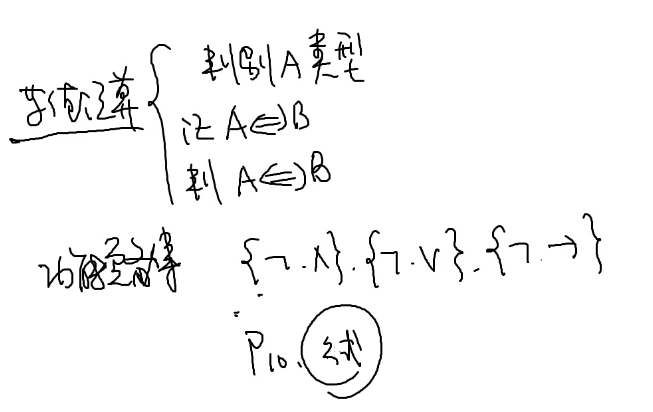 等值演算 { 判别A类型
证 A⇔B
判 A⇔B
功能完备集 {¬.∧}.{¬.∨}.{¬.→}
P10.